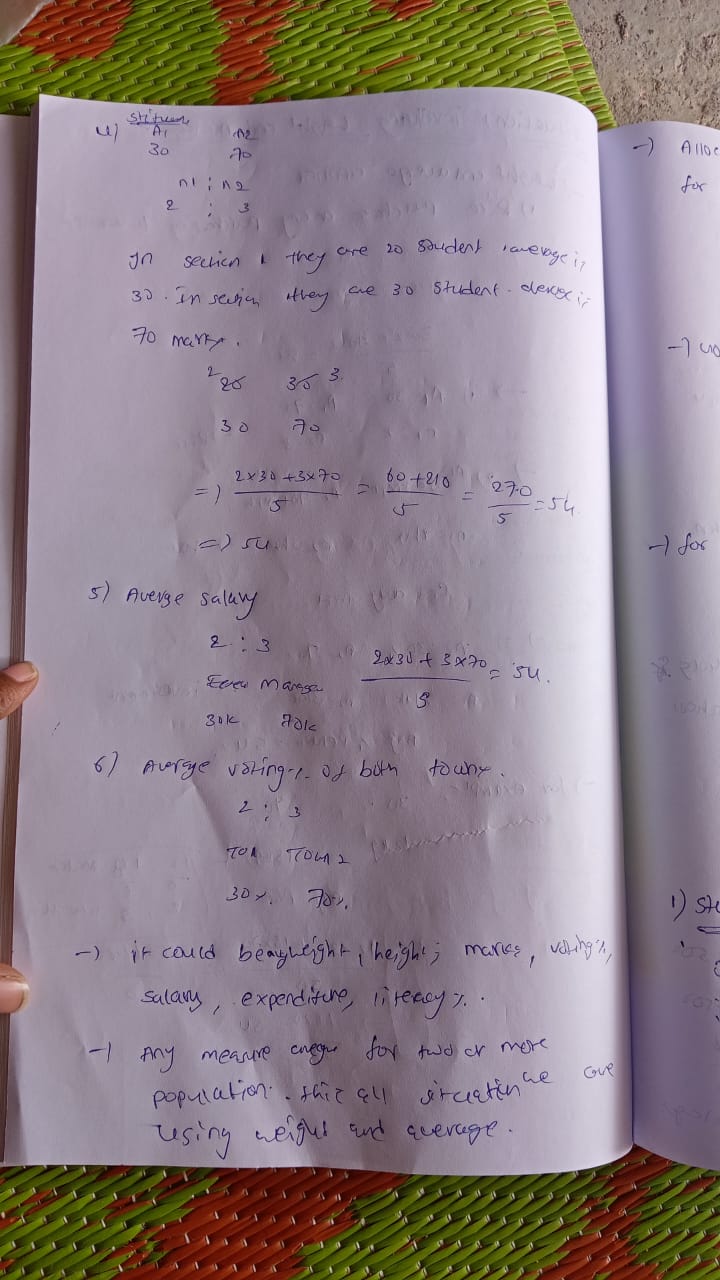 4)
A1 n2
30 70
n1 : n2
2 : 3
In section 1 they are 20 student, average is
30. In section they are 30 student.
70 marks.
2 20 30 3
30 70
=) 2x30 +3x70 / 5 = 60+210 / 5 = 270 / 5 = 54
=) 54
5) Averge salary
2 : 3
2x30 + 3x70 / 5 = 54.
30k 70k
6) Averge voting % of both towns.
2 : 3
Town 2
30%. 70%.
-) it could be any weight, height, marks, voting %,
salary, expenditure, literacy %.
-) Any measure for two or more
population. this all situation we
using weight and average.
-) Alloc
for
-)
-) for
1) Ste